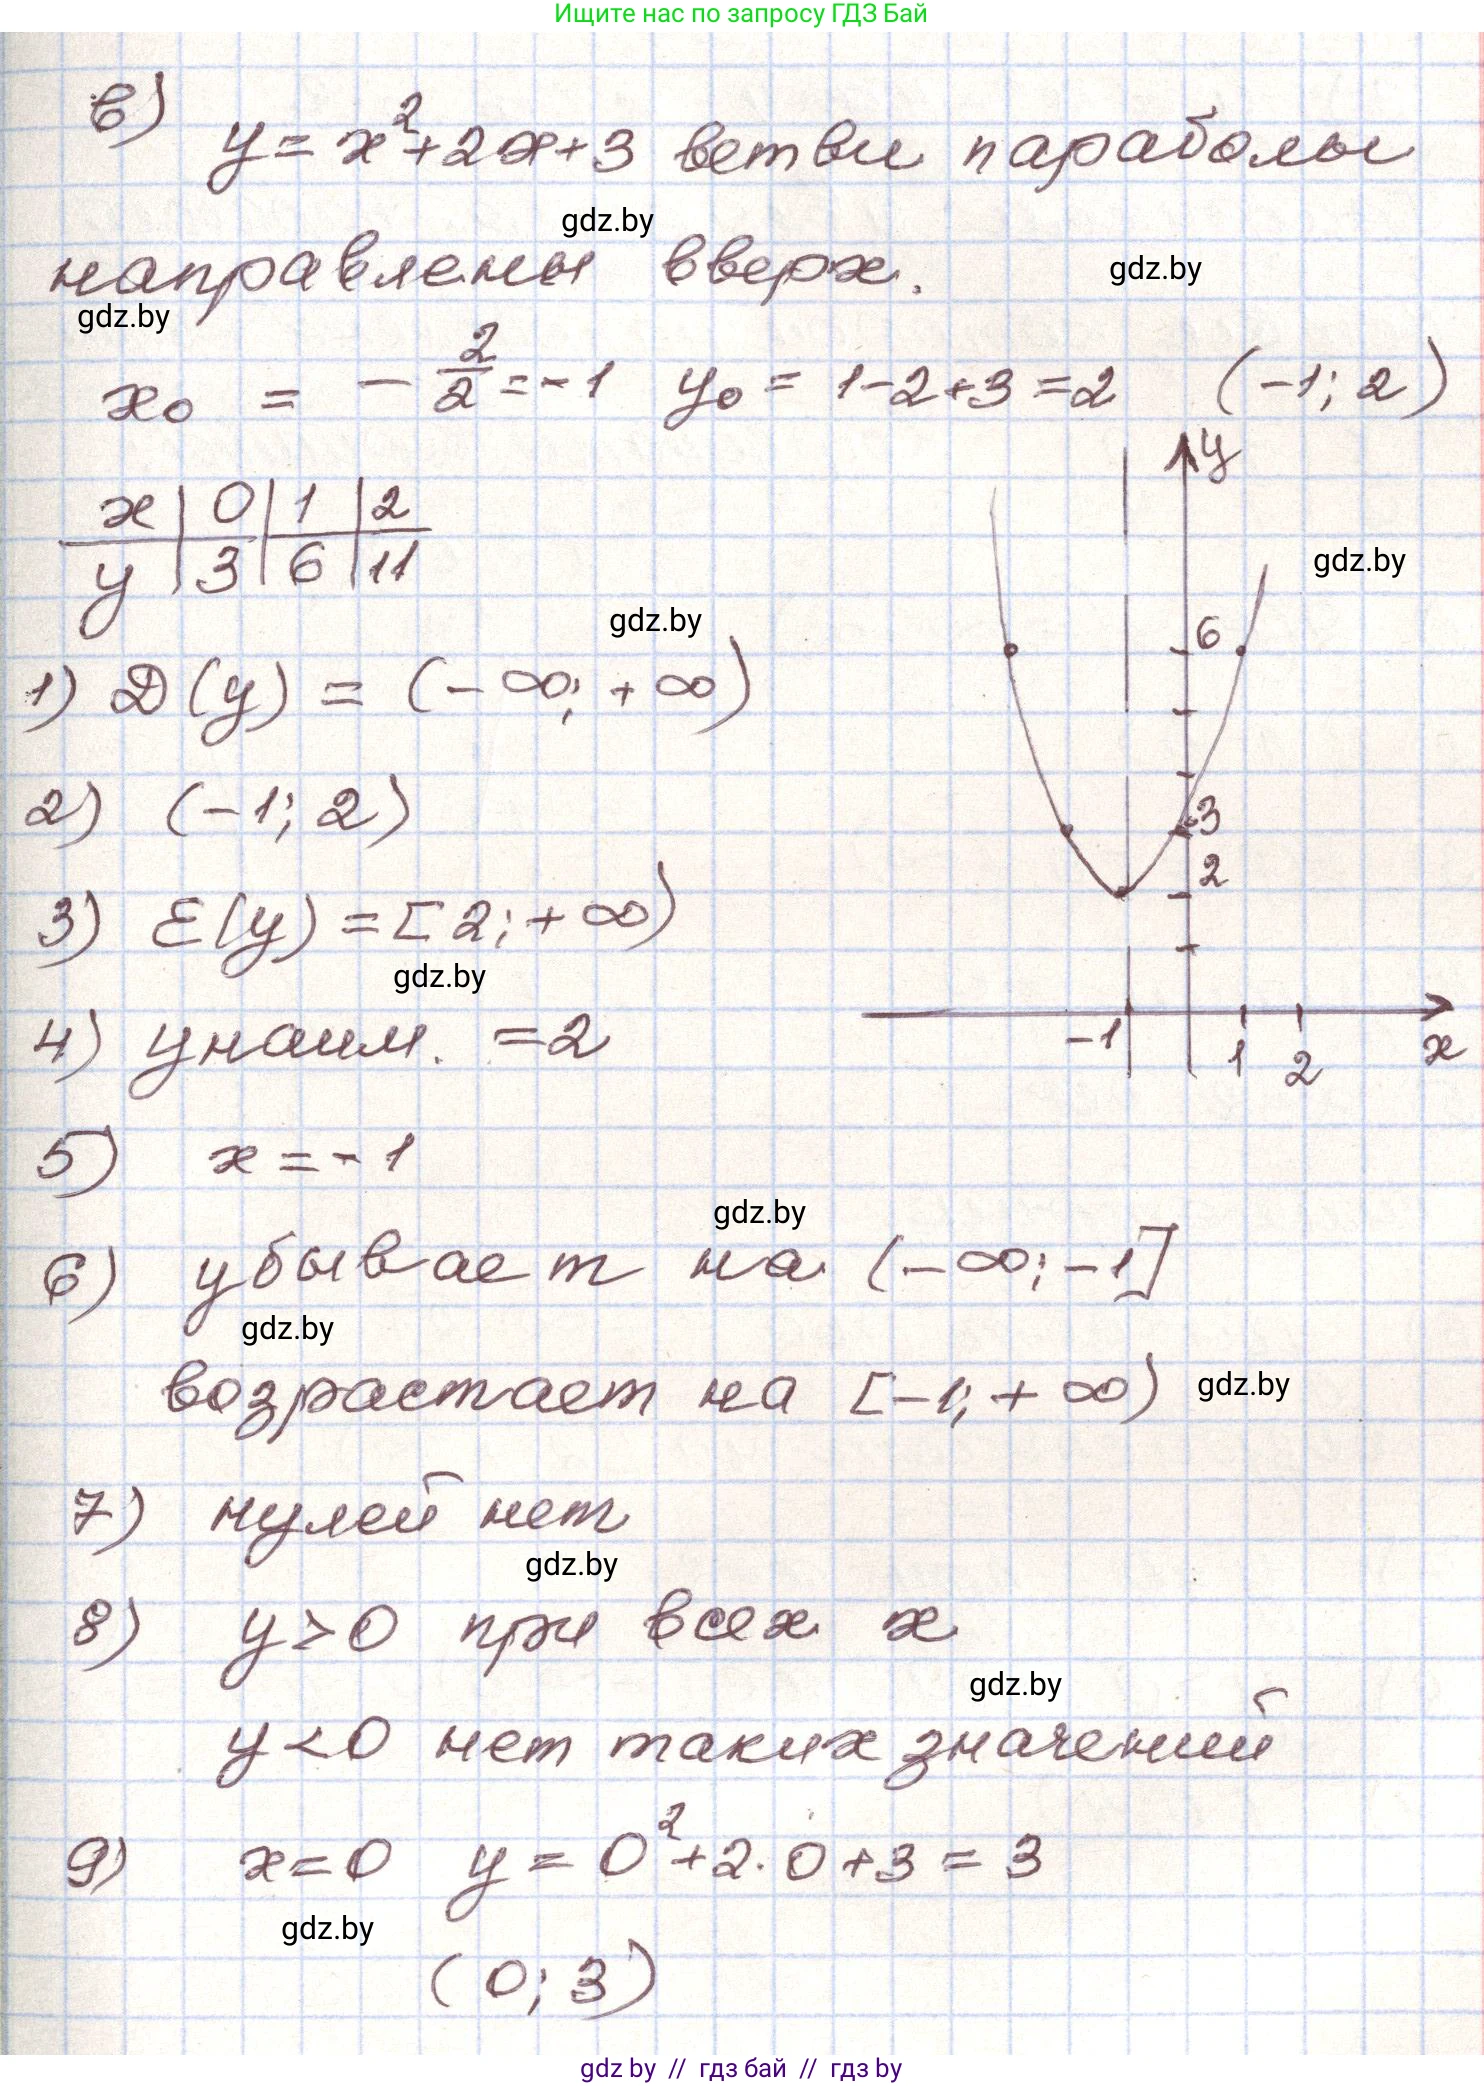 Ищите нас по запросу ГДЗ Бай
в) y = x²+2x+3 ветви параболы
gdz.by
направлены вверх.
gdz.by
gdz.by
x₀ = -2/2 = -1 y₀ = 1-2+3=2 (-1; 2)
x | 0 | 1 | 2
y | 3 | 6 | 11
y
gdz.by
6
3
2
-1 1 2 x
gdz.by
1) D(y) = (-∞; +∞)
2) (-1; 2)
3) E(y) = [2; +∞)
gdz.by
4) y наим. =2
5) x=-1
gdz.by
6) убывает на (-∞; -1]
gdz.by
возрастает на [-1; +∞)
gdz.by
7) нулей нет
gdz.by
8) y>0 при всех x
gdz.by
y<0 нет таких значений
9) x=0 y = 0²+2·0+3 = 3
gdz.by
(0; 3)
gdz by // гдз бай // гдз by